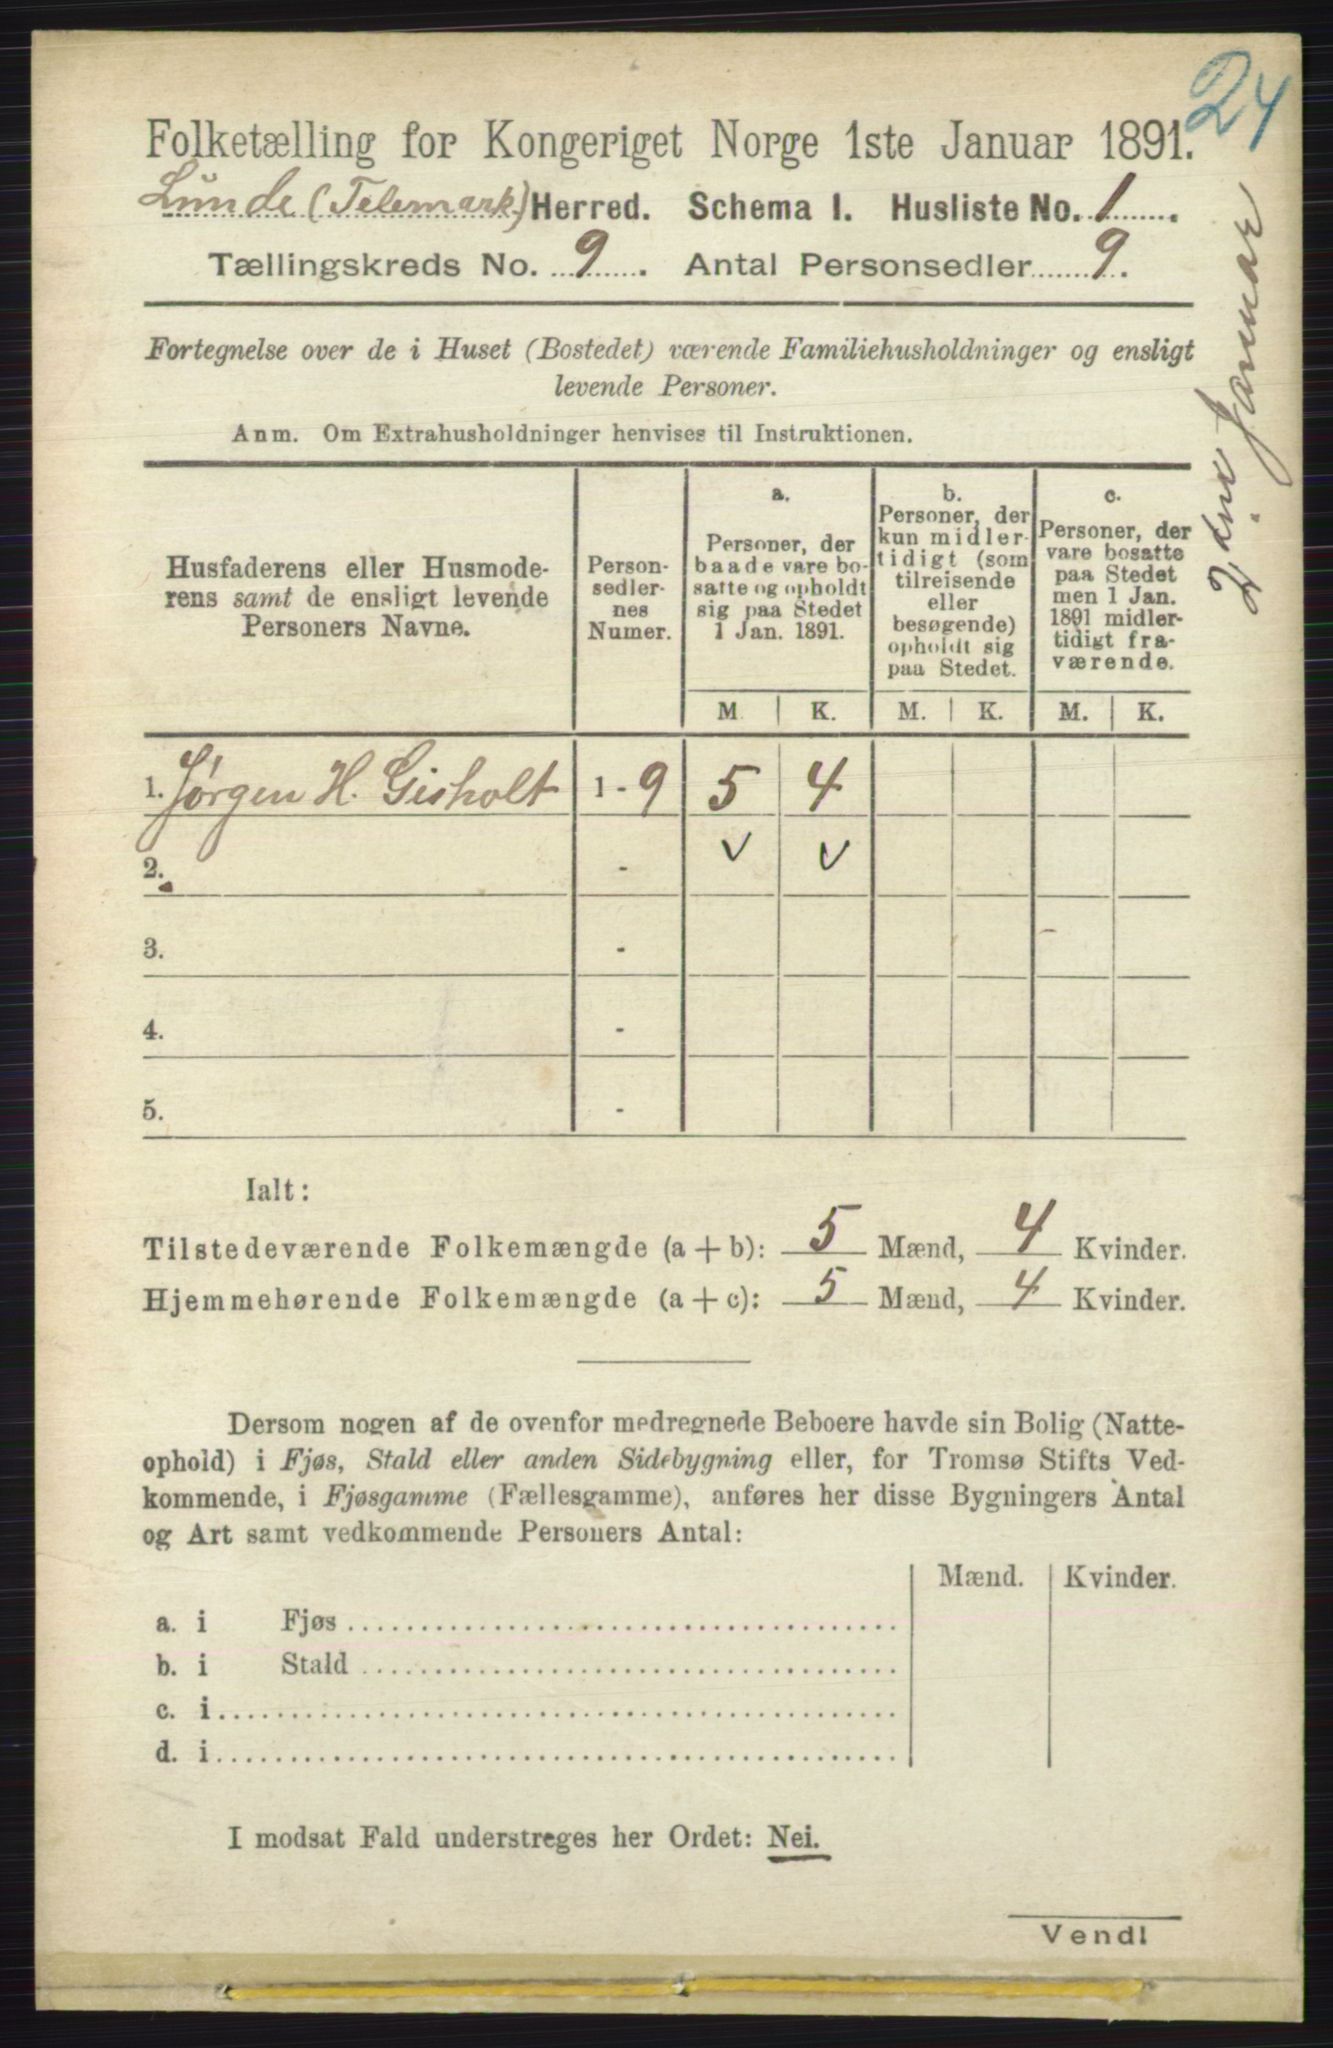 24
Folketælling for Kongeriget Norge 1ste Januar 1891.
Lunde (Telemark) Herred. Schema I. Husliste No. 1.
Tællingskreds No. 9. Antal Personsedler 9.
2den Januar
Fortegnelse over de i Huset (Bostedet) værende Familiehusholdninger og ensligt
levende Personer.
Anm. Om Extrahusholdninger henvises til Instruktionen.
Husfaderens eller Husmode-
rens samt de ensligt levende
Personers Navne.
Person-
sedler-
nes
Numer.
a.
Personer, der
baade vare bo-
satte og opholdt
sig paa Stedet
1 Jan. 1891.
b.
Personer, der
kun midler-
tidigt (som
tilreisende
eller
besøgende)
opholdt sig
paa Stedet.
c.
Personer, der
vare bosatte
paa Stedet
men 1 Jan.
1891 midler-
tidigt fra-
værende.
M. K. M. K. M. K.
1. Jørgen H. Gisholt 1 - 9 5 4
2. - v v
3. -
4. -
5. -
Ialt:
Tilstedeværende Folkemængde (a + b): 5 Mænd, 4 Kvinder.
Hjemmehørende Folkemængde (a + c): 5 Mænd, 4 Kvinder.
Dersom nogen af de ovenfor medregnede Beboere havde sin Bolig (Natte-
ophold) i Fjøs, Stald eller anden Sidebygning eller, for Tromsø Stifts Ved-
kommende, i Fjøsgamme (Fællesgamme), anføres her disse Bygningers Antal
og Art samt vedkommende Personers Antal:
Mænd. Kvinder.
a. i Fjøs
b. i Stald
c. i
d. i
I modsat Fald understreges her Ordet: Nei.
Vendl